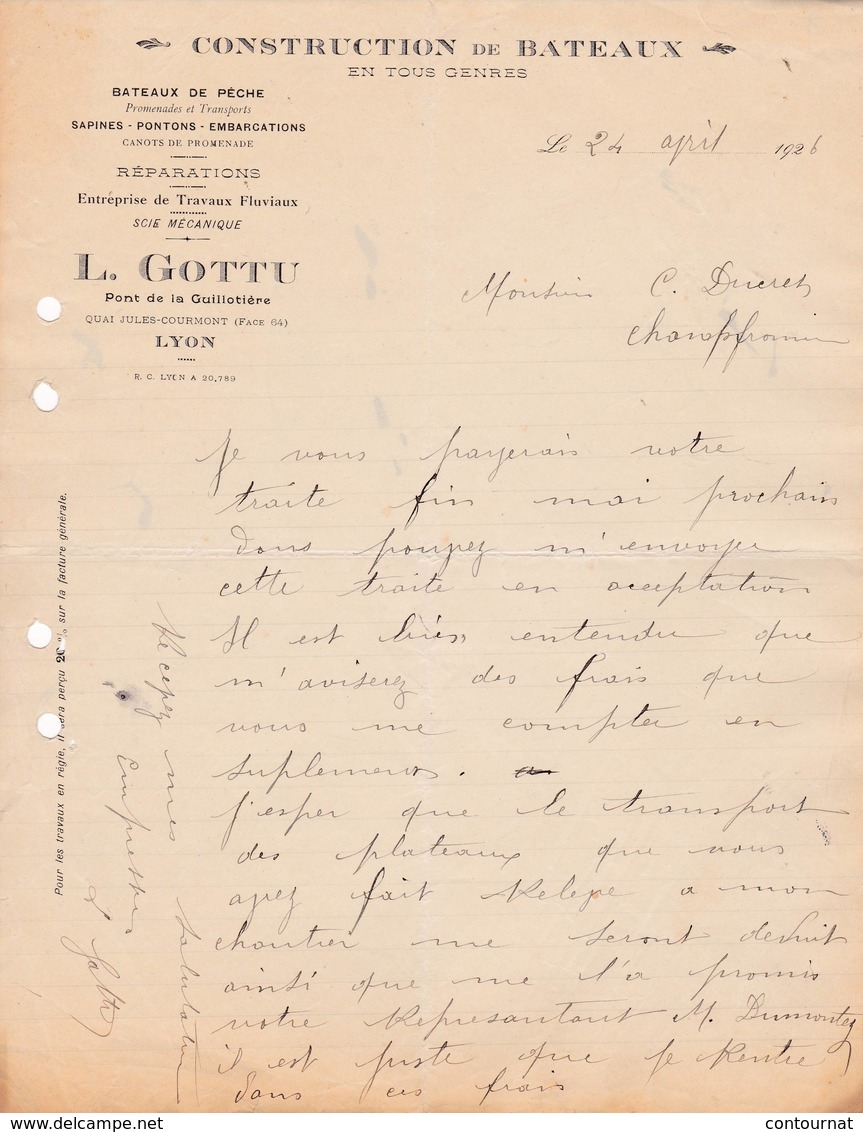 CONSTRUCTION DE BATEAUX
EN TOUS GENRES
BATEAUX DE PÊCHE
Promenades et Transports
SAPINES - PONTONS - EMBARCATIONS
CANOTS DE PROMENADE
RÉPARATIONS
Entréprise de Travaux Fluviaux
SCIE MÉCANIQUE
L. GOTTU
Pont de la Guillotière
QUAI JULES-COURMONT (FACE 64)
LYON
R. C. LYON A 20,789
Le 24 april 1926
Monsieur C. Ducret
Champfromier
Je vous payerais votre
traite fin mai prochain
donc pouvez m'envoyer
cette traite en acceptation
Il est bien entendu que
m'aviserez des frais que
vous me compter en
suplement.
j'esper que le transport
des plateaux que vous
avez fait Relepe a mon
chantier me seront deduit
ainsi que me l'a promis
votre Représantant M. Dumontez
il est juste que je Rentre
dans ces frais
Recevez mes salutation
Empressées
L Gottu
Pour les travaux en régie, il sera perçu 20 % sur la facture générale.
delcampe.net
contournat